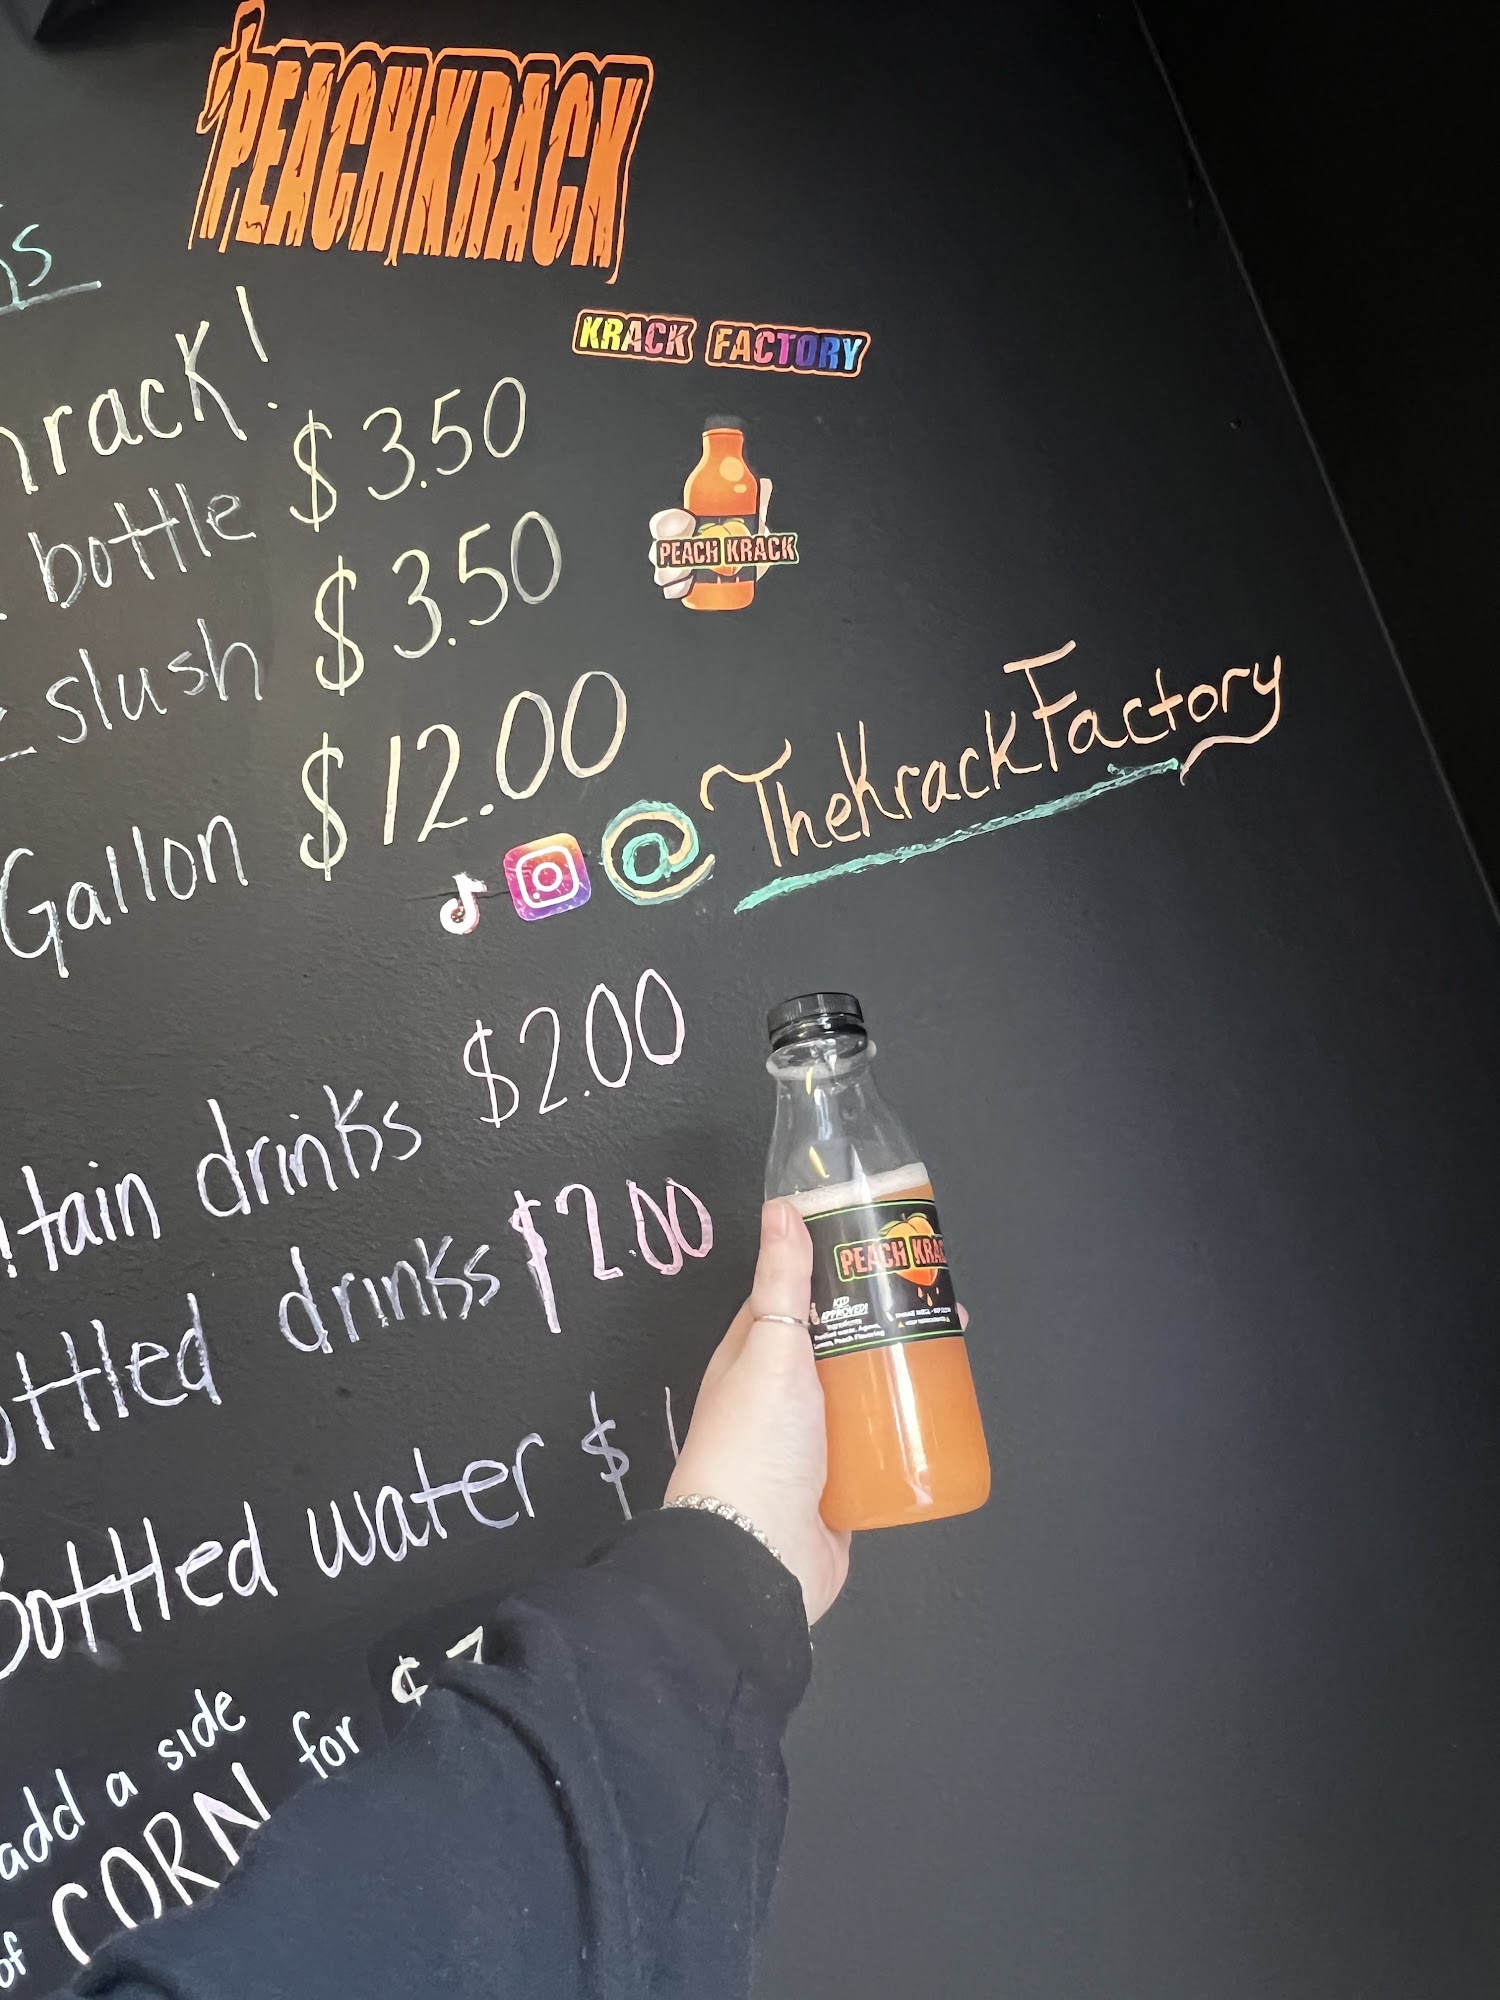 PEACH KRACK
KRACK FACTORY
Krack!
bottle $3.50
PEACH KRACK
slush $3.50
Gallon $12.00
@TheKrackFactory
drinks $2.00
drinks $2.00
PEACH
KID
APPROVED!
Bottled water $
add a side
of CORN for